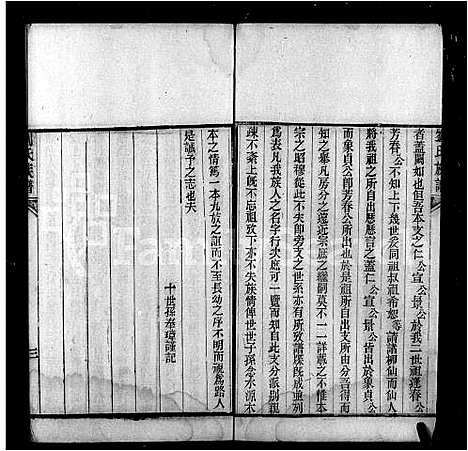 劉氏族譜
者蓋闕如也但吾本支之仁公宣公景公於我二世祖逢春公
芳春公不知上下幾世爰同祖叔祖希恕等請諸禪仙而仙人
將我祖之所自出歷歷言之蓋仁公宣公景公皆出於象貞公
而象貞公即芳春公所出也於是祖所自出支所自分昌得而
知之舉凡房分之遠近宗庶之繼嗣莫不一一詳載之不惟本
宗之昭穆從此不失即旁支之世系亦有所攷諸譔旣成並列
為表凡我族人之名字行次庶可一覽而知自此支分派別親
疎不紊上旣不忘祖攷下亦不失族情俾世世子孫念水源木
本之情篤一本九族之誼而不至長幼之序不明而視為路人
是誠予之志也夫
十世孫奉璋謹記
劉氏族譜
三